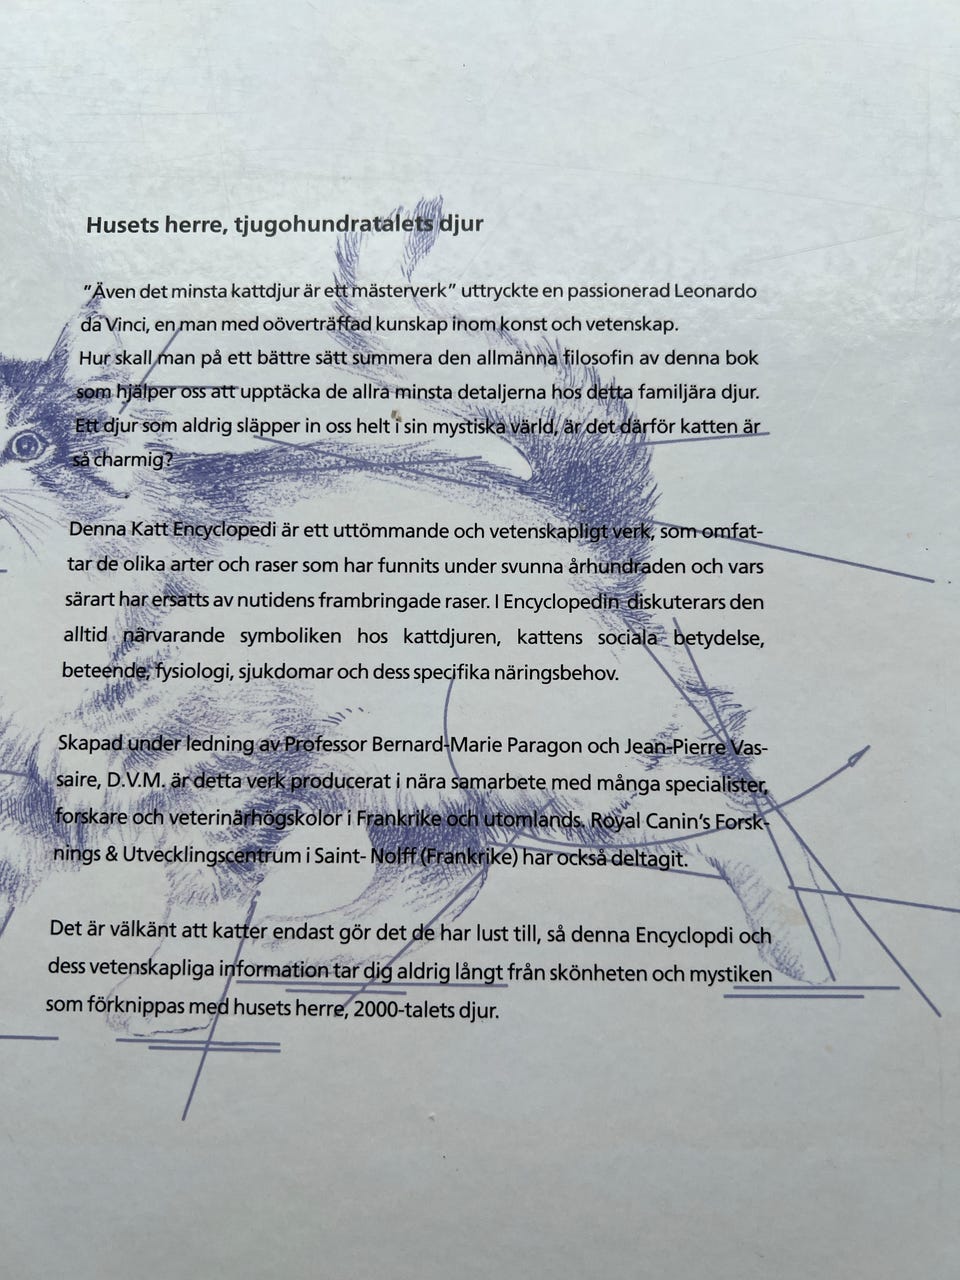 Husets herre, tjugohundratalets djur
"Även det minsta kattdjur är ett mästerverk" uttryckte en passionerad Leonardo
da Vinci, en man med oöverträffad kunskap inom konst och vetenskap.
Hur skall man på ett bättre sätt summera den allmänna filosofin av denna bok
som hjälper oss att upptäcka de allra minsta detaljerna hos detta familjära djur.
Ett djur som aldrig släpper in oss helt i sin mystiska värld, är det därför katten är
så charmig?
Denna Katt Encyclopedi är ett uttömmande och vetenskapligt verk, som omfat-
tar de olika arter och raser som har funnits under svunna århundraden och vars
särart har ersatts av nutidens frambringade raser. I Encyclopedin diskuterars den
alltid närvarande symboliken hos kattdjuren, kattens sociala betydelse,
beteende, fysiologi, sjukdomar och dess specifika näringsbehov.
Skapad under ledning av Professor Bernard-Marie Paragon och Jean-Pierre Vas-
saire, D.V.M. är detta verk producerat i nära samarbete med många specialister,
forskare och veterinärhögskolor i Frankrike och utomlands. Royal Canin's Forsk-
nings & Utvecklingscentrum i Saint- Nolff (Frankrike) har också deltagit.
Det är välkänt att katter endast gör det de har lust till, så denna Encyclopdi och
dess vetenskapliga information tar dig aldrig långt från skönheten och mystiken
som förknippas med husets herre, 2000-talets djur.